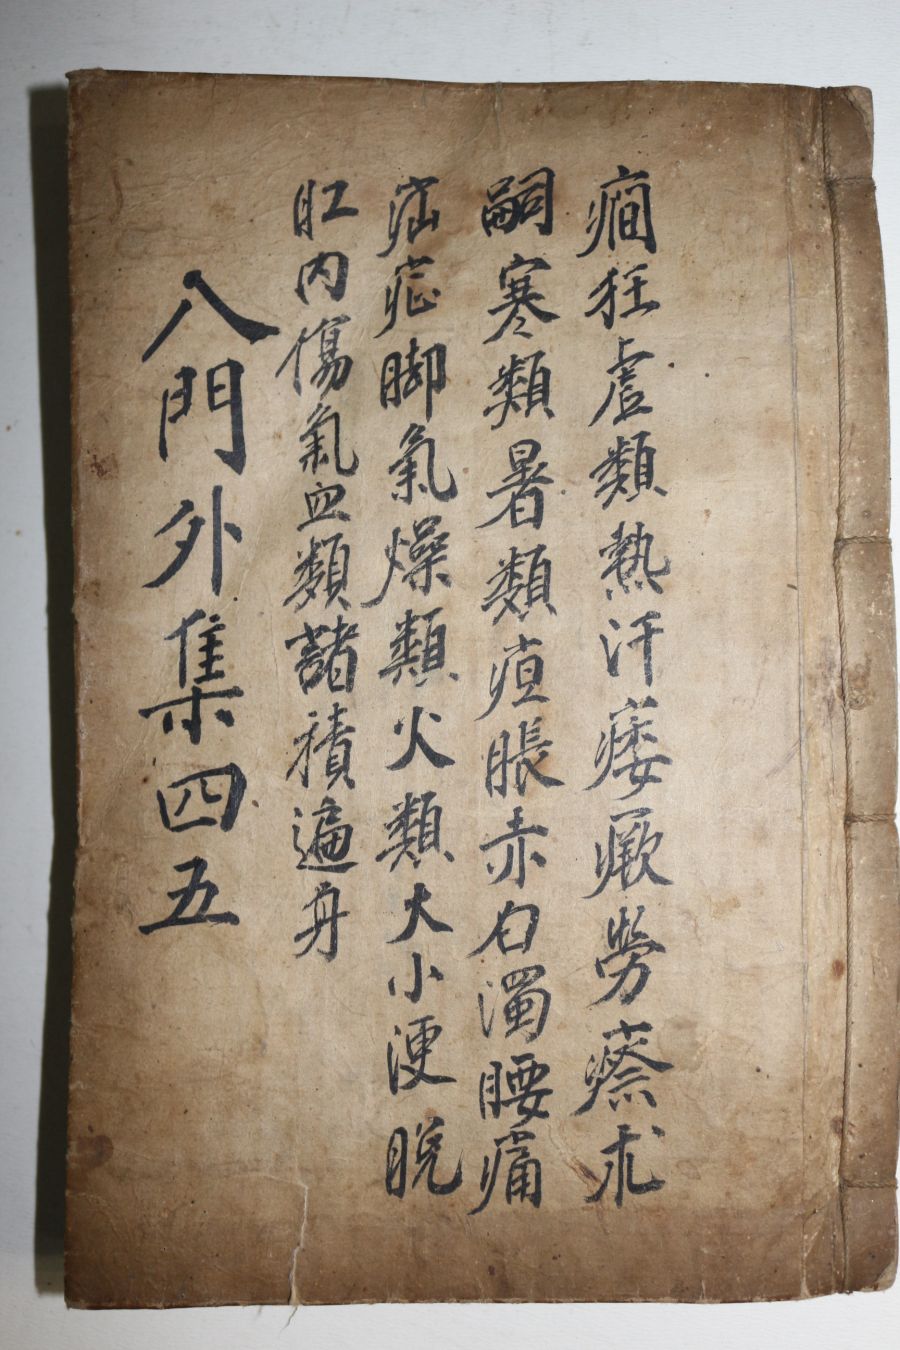 癎狂虛類熱汗痿厥勞瘵求
嗣寒類暑類疸脹赤白濁腰痛
疝症脚氣燥類火類大小便脫
肛內傷氣血類諸積遍身
八門外集四五